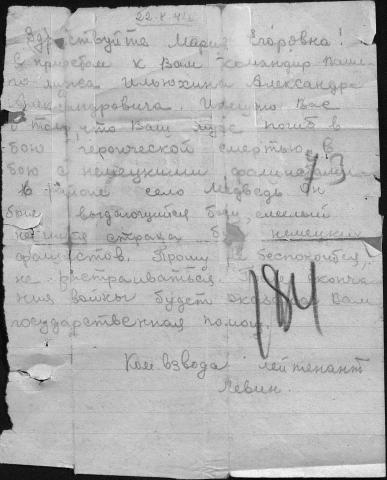 22.8.42
Здравствуйте Мария Егоровна!
С приветом к Вам командир Ваше
го мужа Ильюхина Александра
Александровича. Извещаю Вас
о том, что Ваш муж погиб в
бою героической смертью в
бою с немецкими фашистами.
В районе село Медведь Он
был выдающийся боец, смелый
страха немецких
фашистов. Прошу не беспокоится,
не растраиваться. оконча
ния войны будет оказана Вам
государственная помощь.
Ком взвода лейтенант
Левин.
184